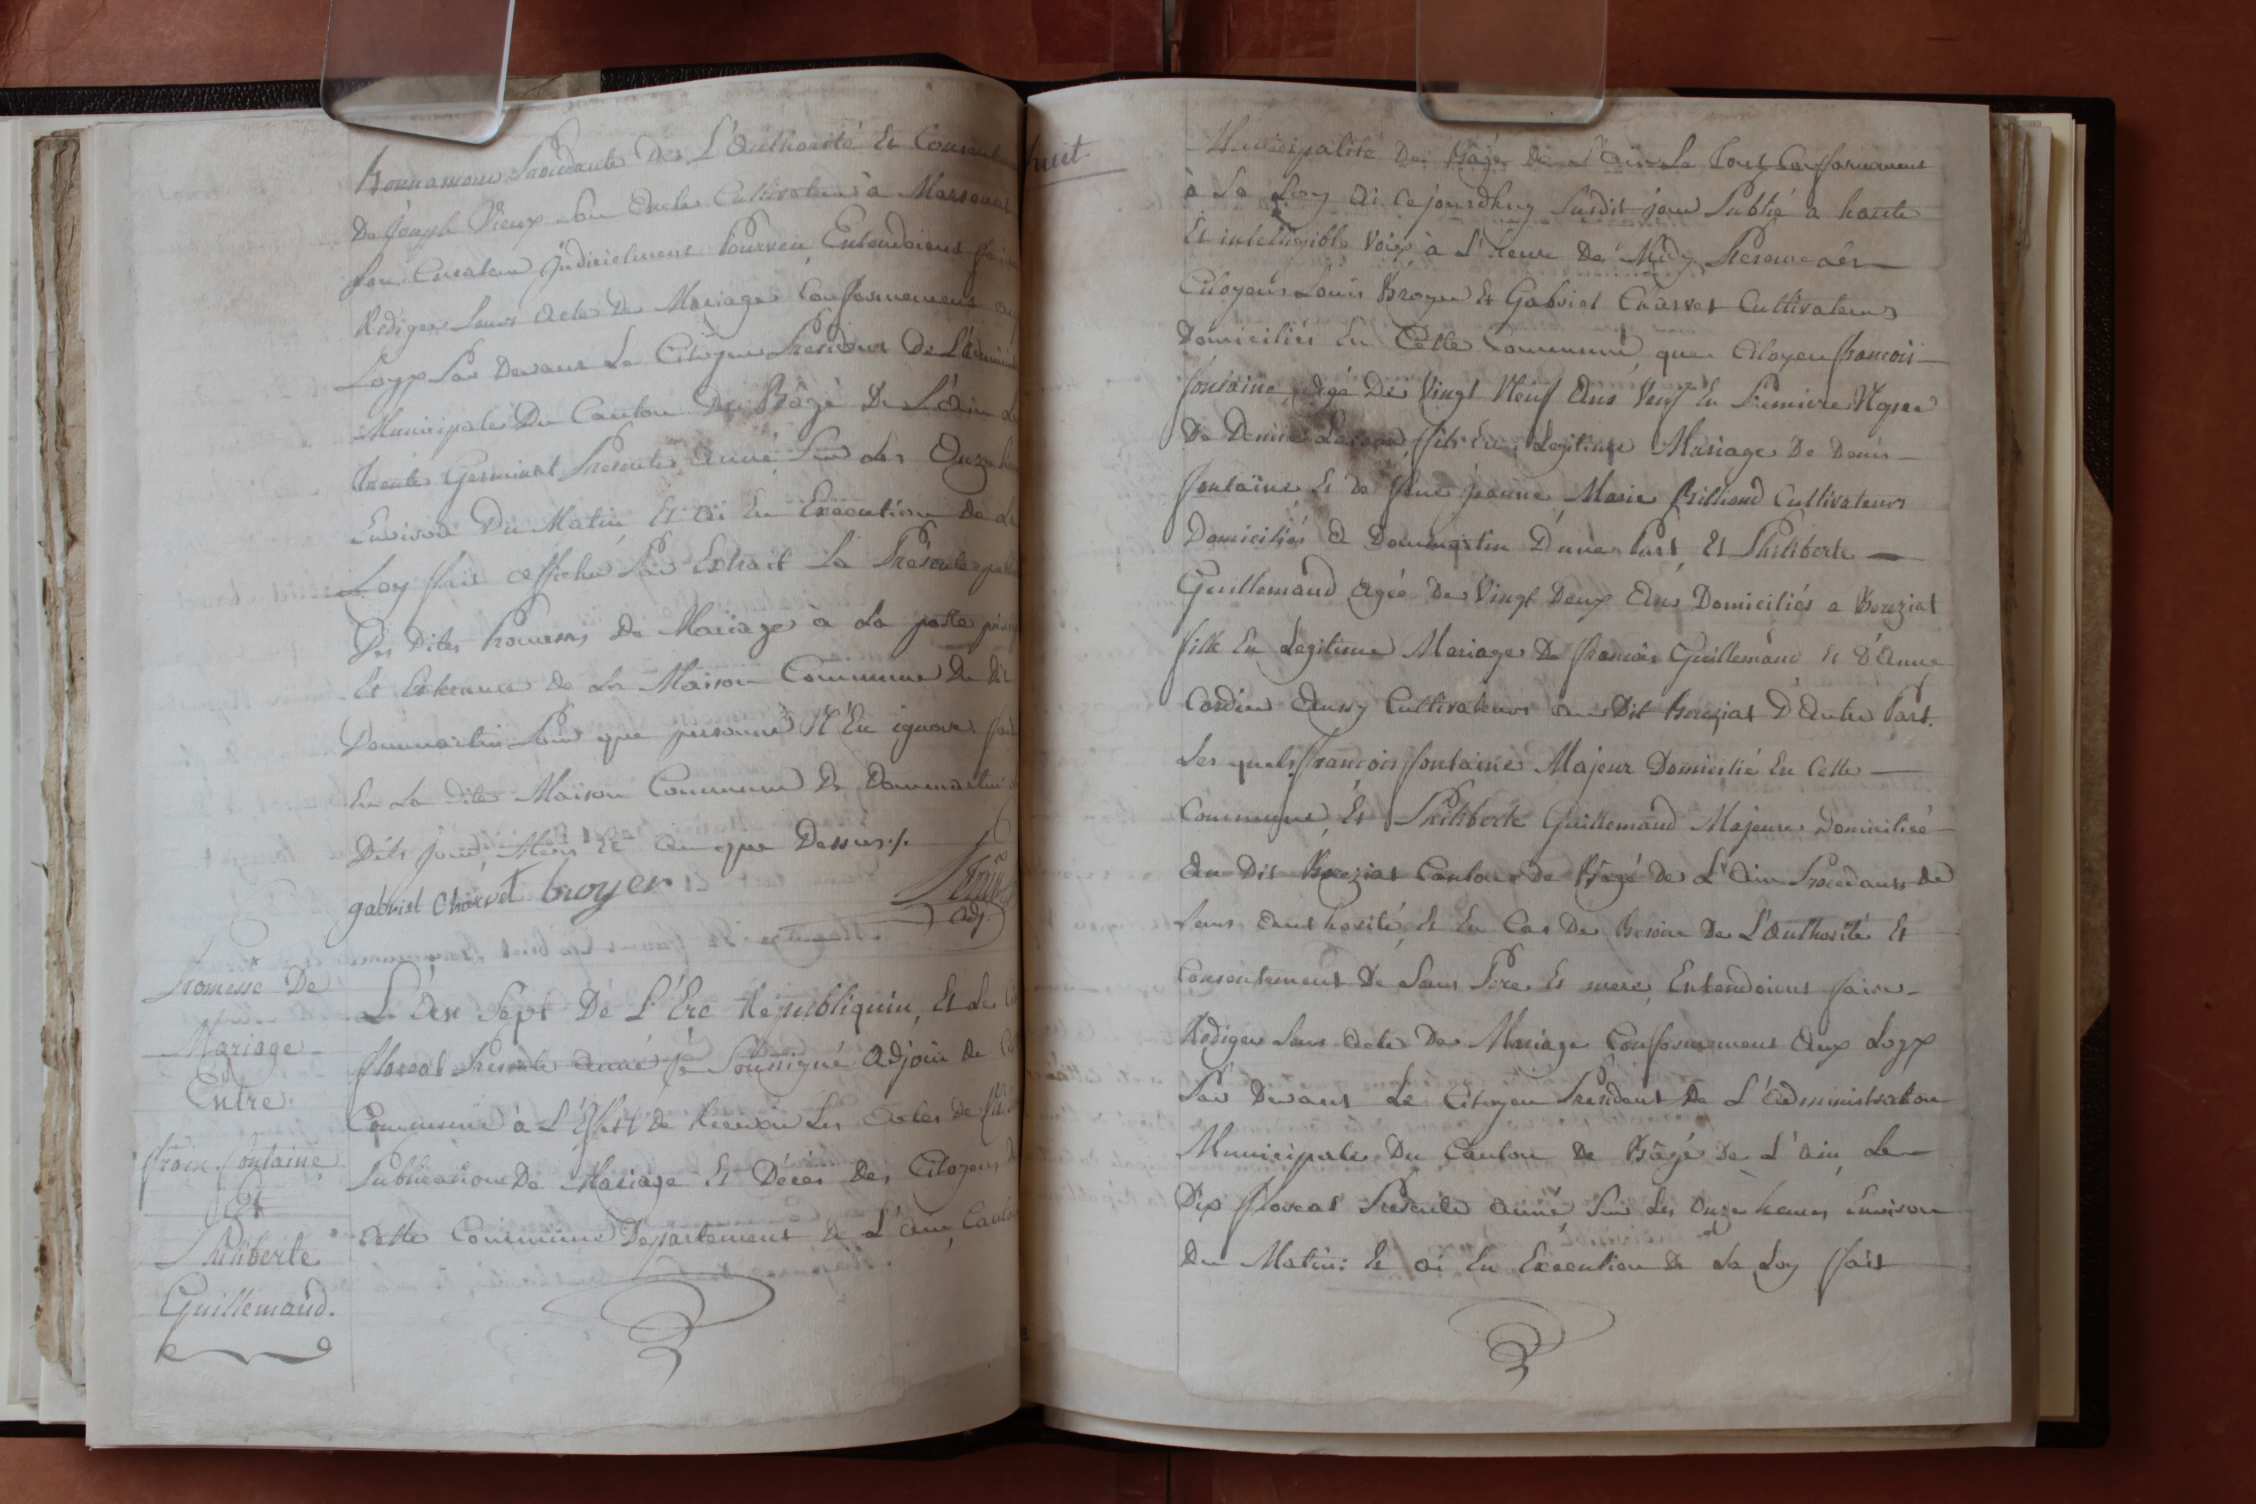 Bonnamour Procedante De L'Authorité Et Consent
De Joseph Vieux son Oncle Cultivateur à Marsonnas
son Curateur judiciellement Pourveu, Entendoient fai
Rediger Leurs Acte De Mariage Conformement au
Loyx Par Devant Le Citoyen President De L'admini
Municipale Du Canton De Bâgé De L'Ain Le
trente Germinal Presente Année Sur Les Onze heu
Environ Du Matin Et ai En Execution De La
Loy fait afficher Par Extrait La Présente
Des Dites Promesses De Mariage a La porte
Et Entrance De La Maison Commune Du Dit
Dommartin Pour que personne N'En ignore fait
En La dite Maison Commune De Dommartin
Dits jour, Mois Et an que Dessus ./.
gabriel Charvet broyer
adj.
Promesse De
Mariage
Entre
frois. fontaine
Et
Philiberte
Guillemaud.
L'An Sept De L'Ere Républiquin, Et Le
floreal Presente année je Soussigné Adjoin de
Commune à L'Effet de Recevoir Les Actes de
Publication De Mariage Et Décès Des Citoyens
Cette Commune Departement De L'Ain, Canton
huit
Municipalité De Bâgé De L'Ain Le Tout Conformement
à La Loy Ai Cejourdhuy Susdit jour Publié a haute
Et intelligible Voix à L'heure De Midy Presence des
Citoyens Louis Broyer Et Gabriel Charvet Cultivateurs
Domiciliés En Cette Commune, que Citoyen francois
fontaine agé De Vingt Neuf Ans Veuf En Premiere Nopce
De Denise fils En Legitime Mariage De Denis
fontaine Et De feue jeanne Marie Billioud Cultivateurs
Domiciliés A Dommartin D'une Part, Et Philiberte
Guillemaud Agée De Vingt Deux Ans Domiciliés a Boeziat
fille En Legitime Mariage De francois Guillemaud Et D'Anne
Cordier Aussy Cultivateurs au Dit Boeziat D'Autre Part.
Les quels francois fontaine Majeur Domicilié En Cette
Commune, Et Philiberte Guillemaud Majeure Domiciliée
Au Dit Boeziat Canton De Bâgé De L'Ain Procedants De
Leurs authorité, Et En Cas De Besoin De L'Authorité Et
Consentement De Leurs Pere Et mere, Entendoient faire
Rediger Leurs Acte De Mariage Conformement Aux Loyx
Par Devant Le Citoyen President De L'Administration
Municipale Du Canton De Bâgé De L'Ain, Le
Dix floreal Presente année Sur Les Onze heures Environ
Du Matin: Et ai En Execution De La Loy fait